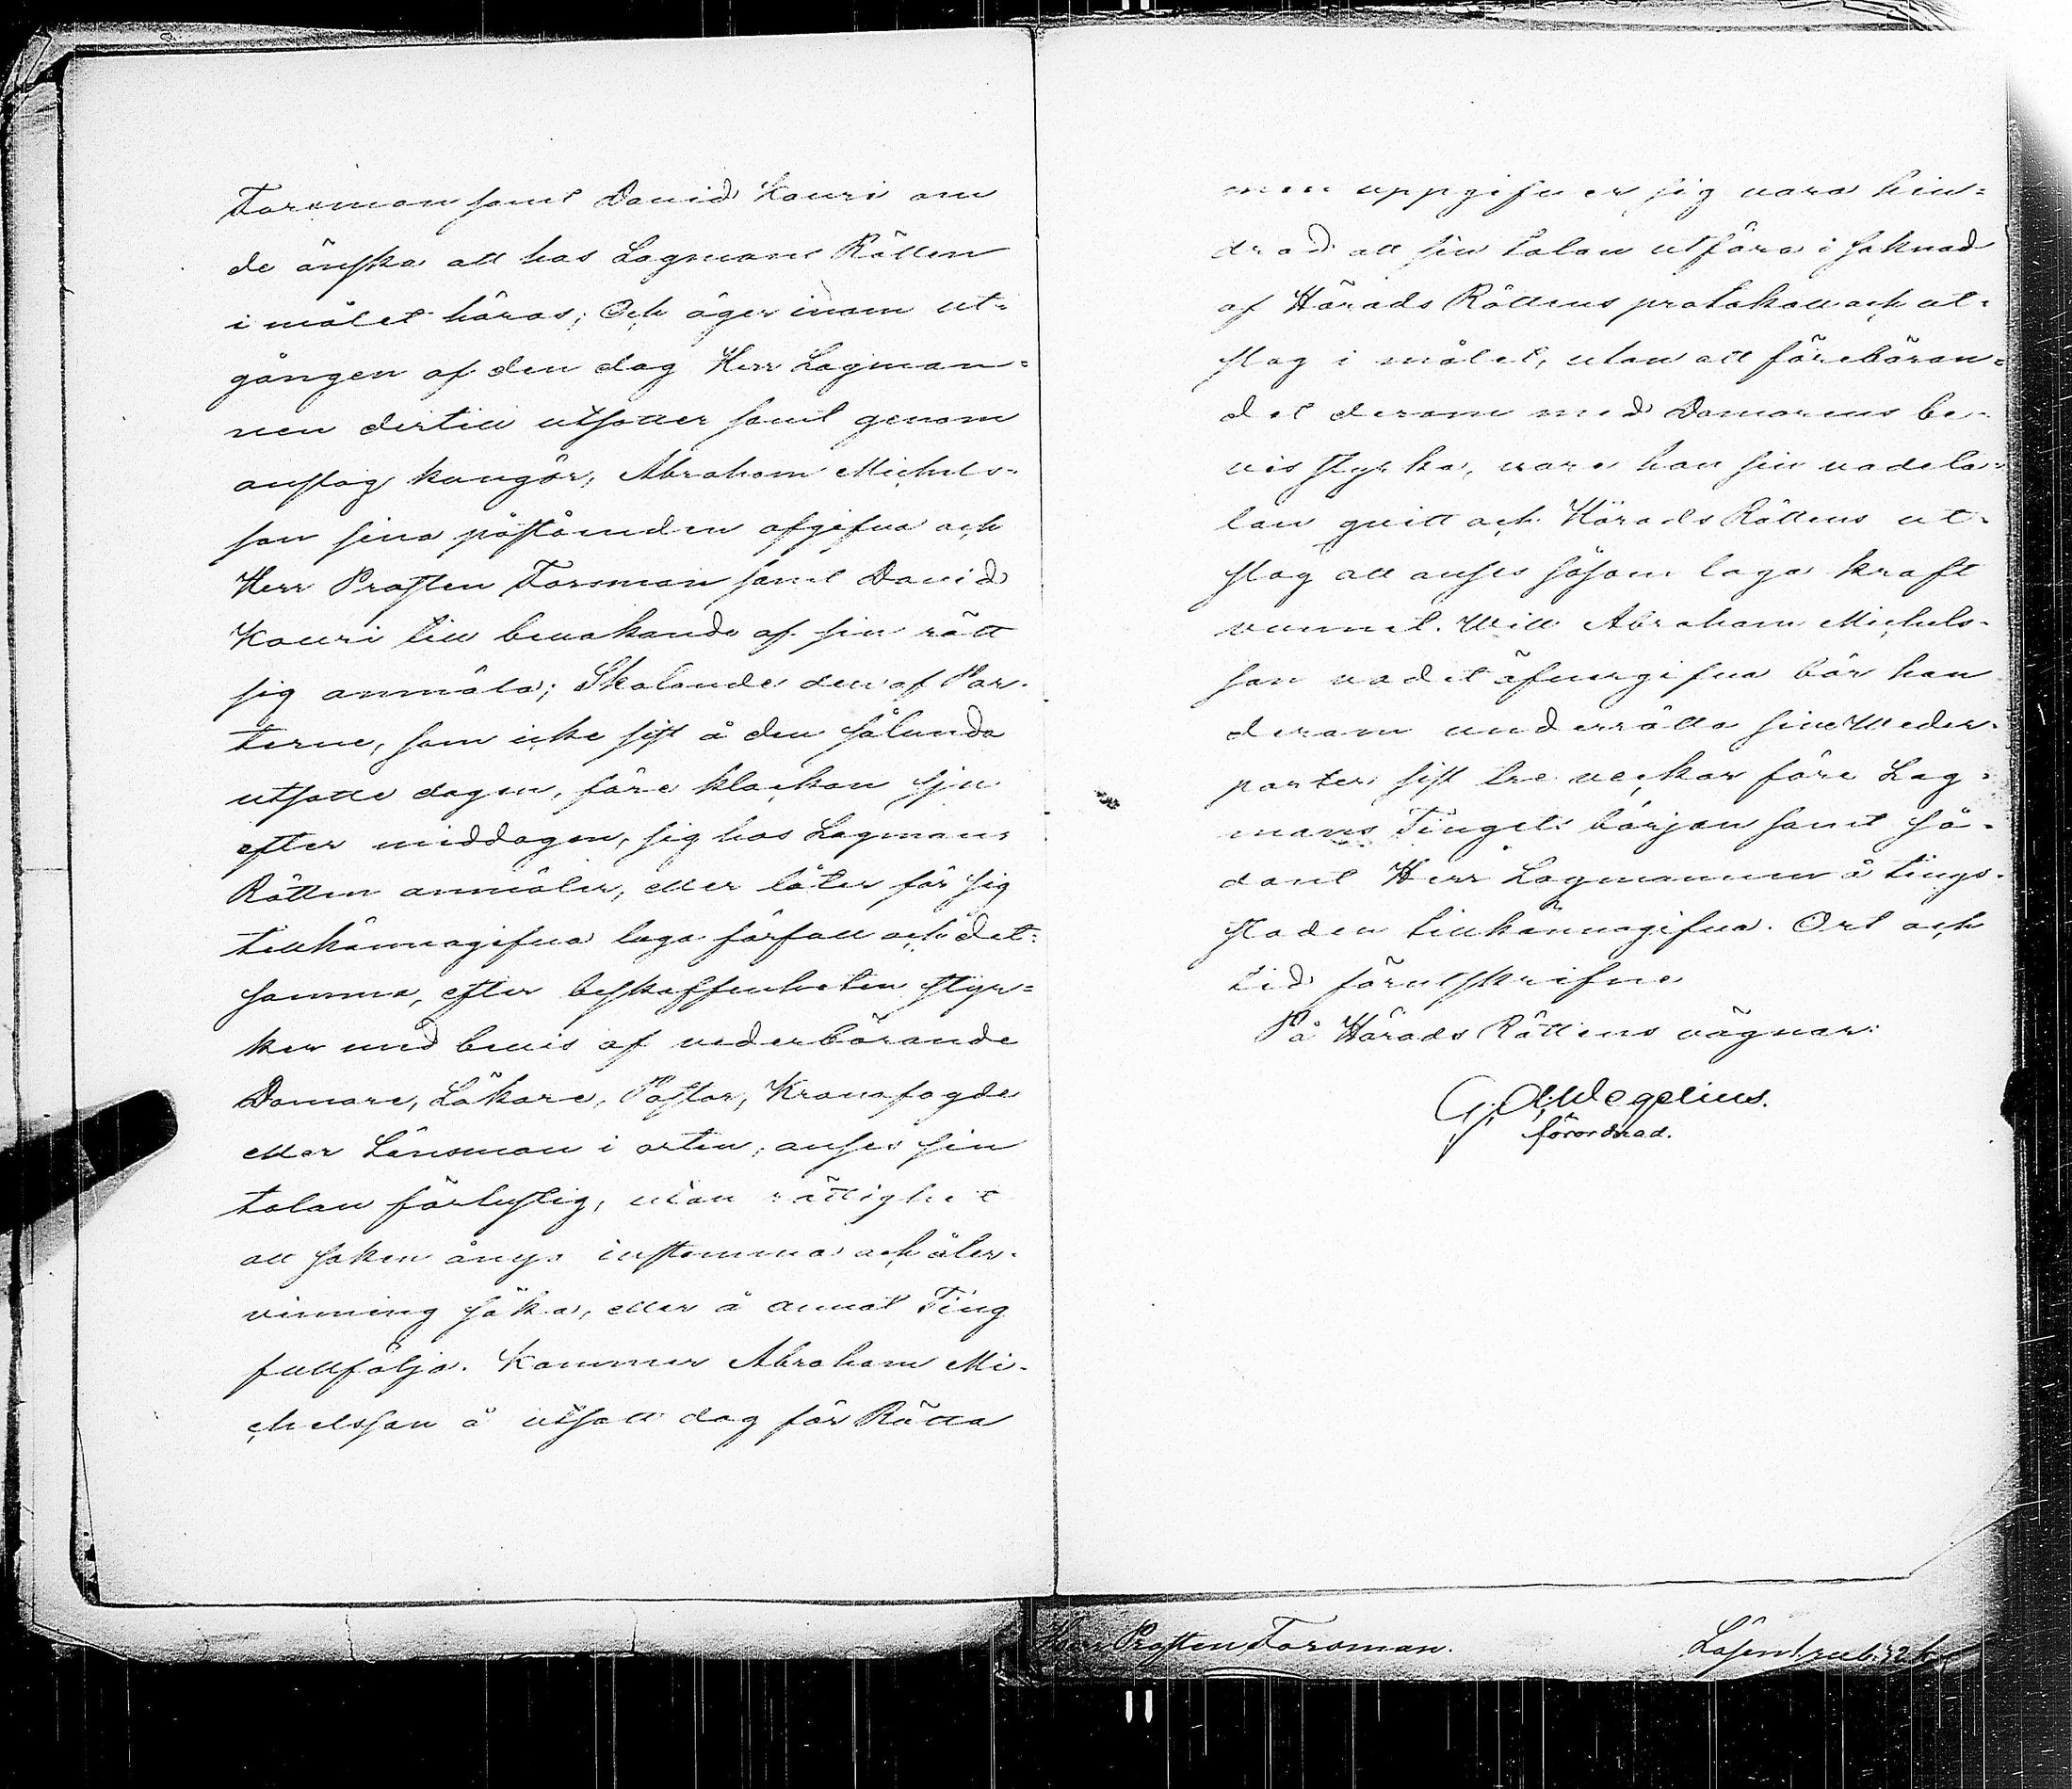 Forsman samt David Kauri om
de önska att hos Lagmans Rätten
i målet höras; Och äger inom ut-
gången af den dag Herr Lagman-
nen dertill utsätter samt genom
anslag kungör, Abraham Michels-
son sina påståenden afgifva och
Herr Prosten Forsman samt David
Kauri till bevakande af sin rätt
sig anmäla; Skolande den af Par-
terne, som icke sist å den sålunda
utsatte dagen, före klockan sju
efter middagen, sig hos Lagmans
Rätten anmäler, eller låter för sig
tillkännagifva laga förfall och det-
samma, efter beskaffenheten styr-
ker med bevis af vederbörande
Domare, Läkare, Pastor, Kronofogde
eller Länsman i orten, anses sin
talan förlustig, utan rättighet
att saken ånyo instämma och åter-
vinning söka, eller å annat Ting
fullfölja. Kommer Abraham Mi-
chelsson å utsatt dag för Rätta
men uppgifver sig vara hin-
drad att sin talan utföra i saknad
af Härads Rättens protokoll och ut-
slag i målet, utan att föreböran-
det derom med Domarens be-
vis styrka, vare han sin vadeta-
lan qvitt och Härads Rättens ut-
slag att anses såsom laga kraft
vunnit. Will Abraham Michels-
son vadet öfvergifva bör han
derom underrätta sine Weder-
parter sist tre veckor före Lag-
mans Tingets början samt så-
dant Herr Lagmannen å tings-
staden tillkännagifva. Ort och
tid förutskrifne
På Härads Rättens vägnar:
G. A. Wegelius.
förordnad.
Herr Prosten Forsman. Lösen 1 rub. 32 k.